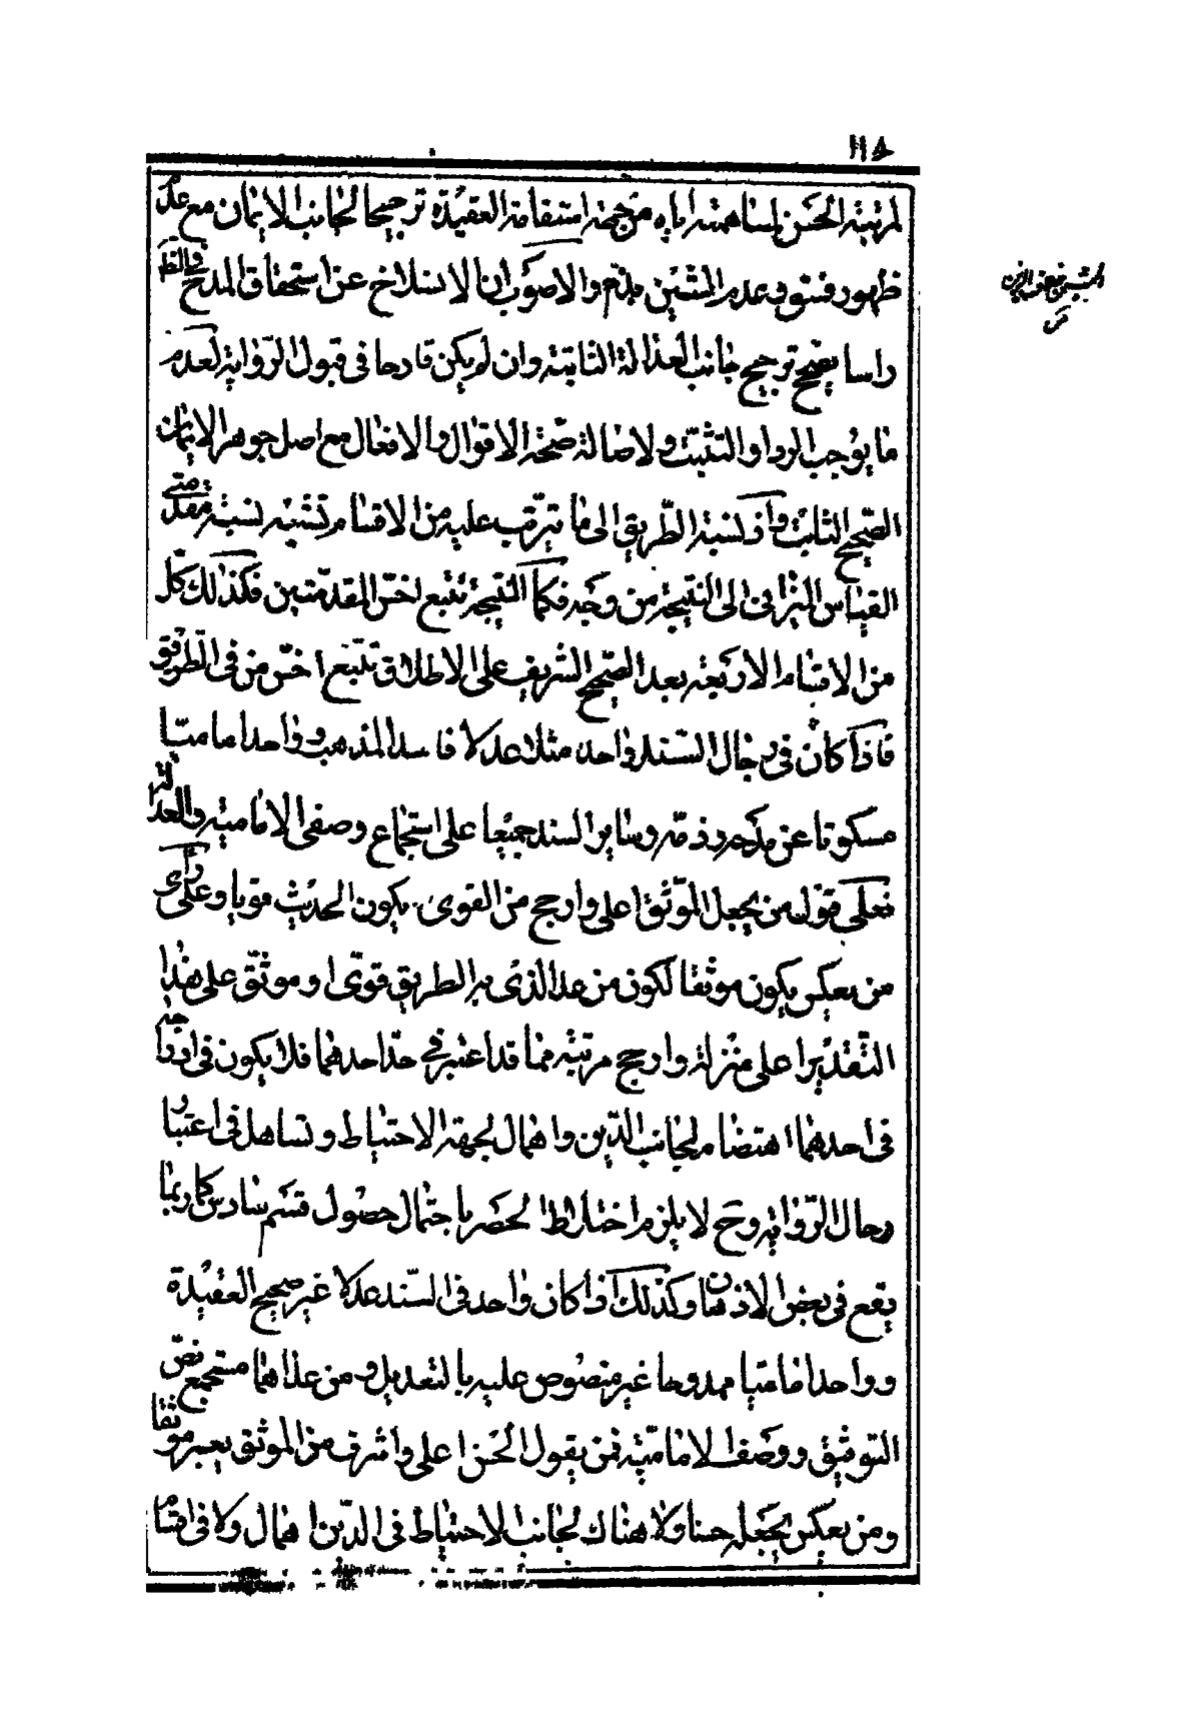 ١١٨
لمرتبة الحسن لمساهمته اياه من جهة استقامة العقيدة ترجيحا لجانب الايمان مع عدم
ظهور فسق وعدم المشين بذم والاصوب ان الانسلاخ عن استحقاق المدح في الظ
راسا يصحح ترجيح جانب العدالة الثابتة وان لم يكن قادحا في قبول الرواية لعدم
ما يوجب الرد او التثبت ولاصالة صحة الاقوال والافعال مع اصل جوهر الايمان
الصحيح الثابت واذ نسبة الطريق الى ما يترتب عليه من الاقسام تشبه نسبة مقدمتي
القياس البرهاني الى النتيجة من وجه فكما النتيجة تتبع اخس المقدمتين فكذلك كل
من الاقسام الاربعة بعد الصحيح الشريف على الاطلاق تتبع اخس من في الطريق
فاذا كان في رجال السند واحد مثلا عدلا فاسد المذهب وواحد اماميا
مسكوتا عن مدحه وذمه وساير السند جميعا على استجماع وصفي الامامية والعدالة
فعلى قول من يجعل الموثق اعلى وارجح من القوي يكون الحديث قويا وعلى راى
من يعكس يكون موثقا لكون من عدا الذي به الطريق قوي او موثق على هذا
التقدير اعلى منزلة وارجح مرتبة مما قد اعتبر في حد احدهما فلا يكون في ادراجه
في احدهما اهتضام لجانب الدين واهمال لجهة الاحتياط وتساهل في اعتبار
رجال الرواية وح لا يلزم اختلاط الحصر باحتمال حصول قسم سادس كما ربما
يقع في بعض الاذهان وكذلك اذا كان واحد في السند عدلا غير صحيح العقيدة
وواحد اماميا ممدوحا غير منصوص عليه بالتعديل ومن عداهما مستجمع نص
التوثيق ووصف الامامية فمن يقول الحسن اعلى واشرف من الموثق يعبر موثقا
ومن يعكس يجعله حسنا ولا هناك لجانب الاحتياط في الدين اهمال ولا في اقسام